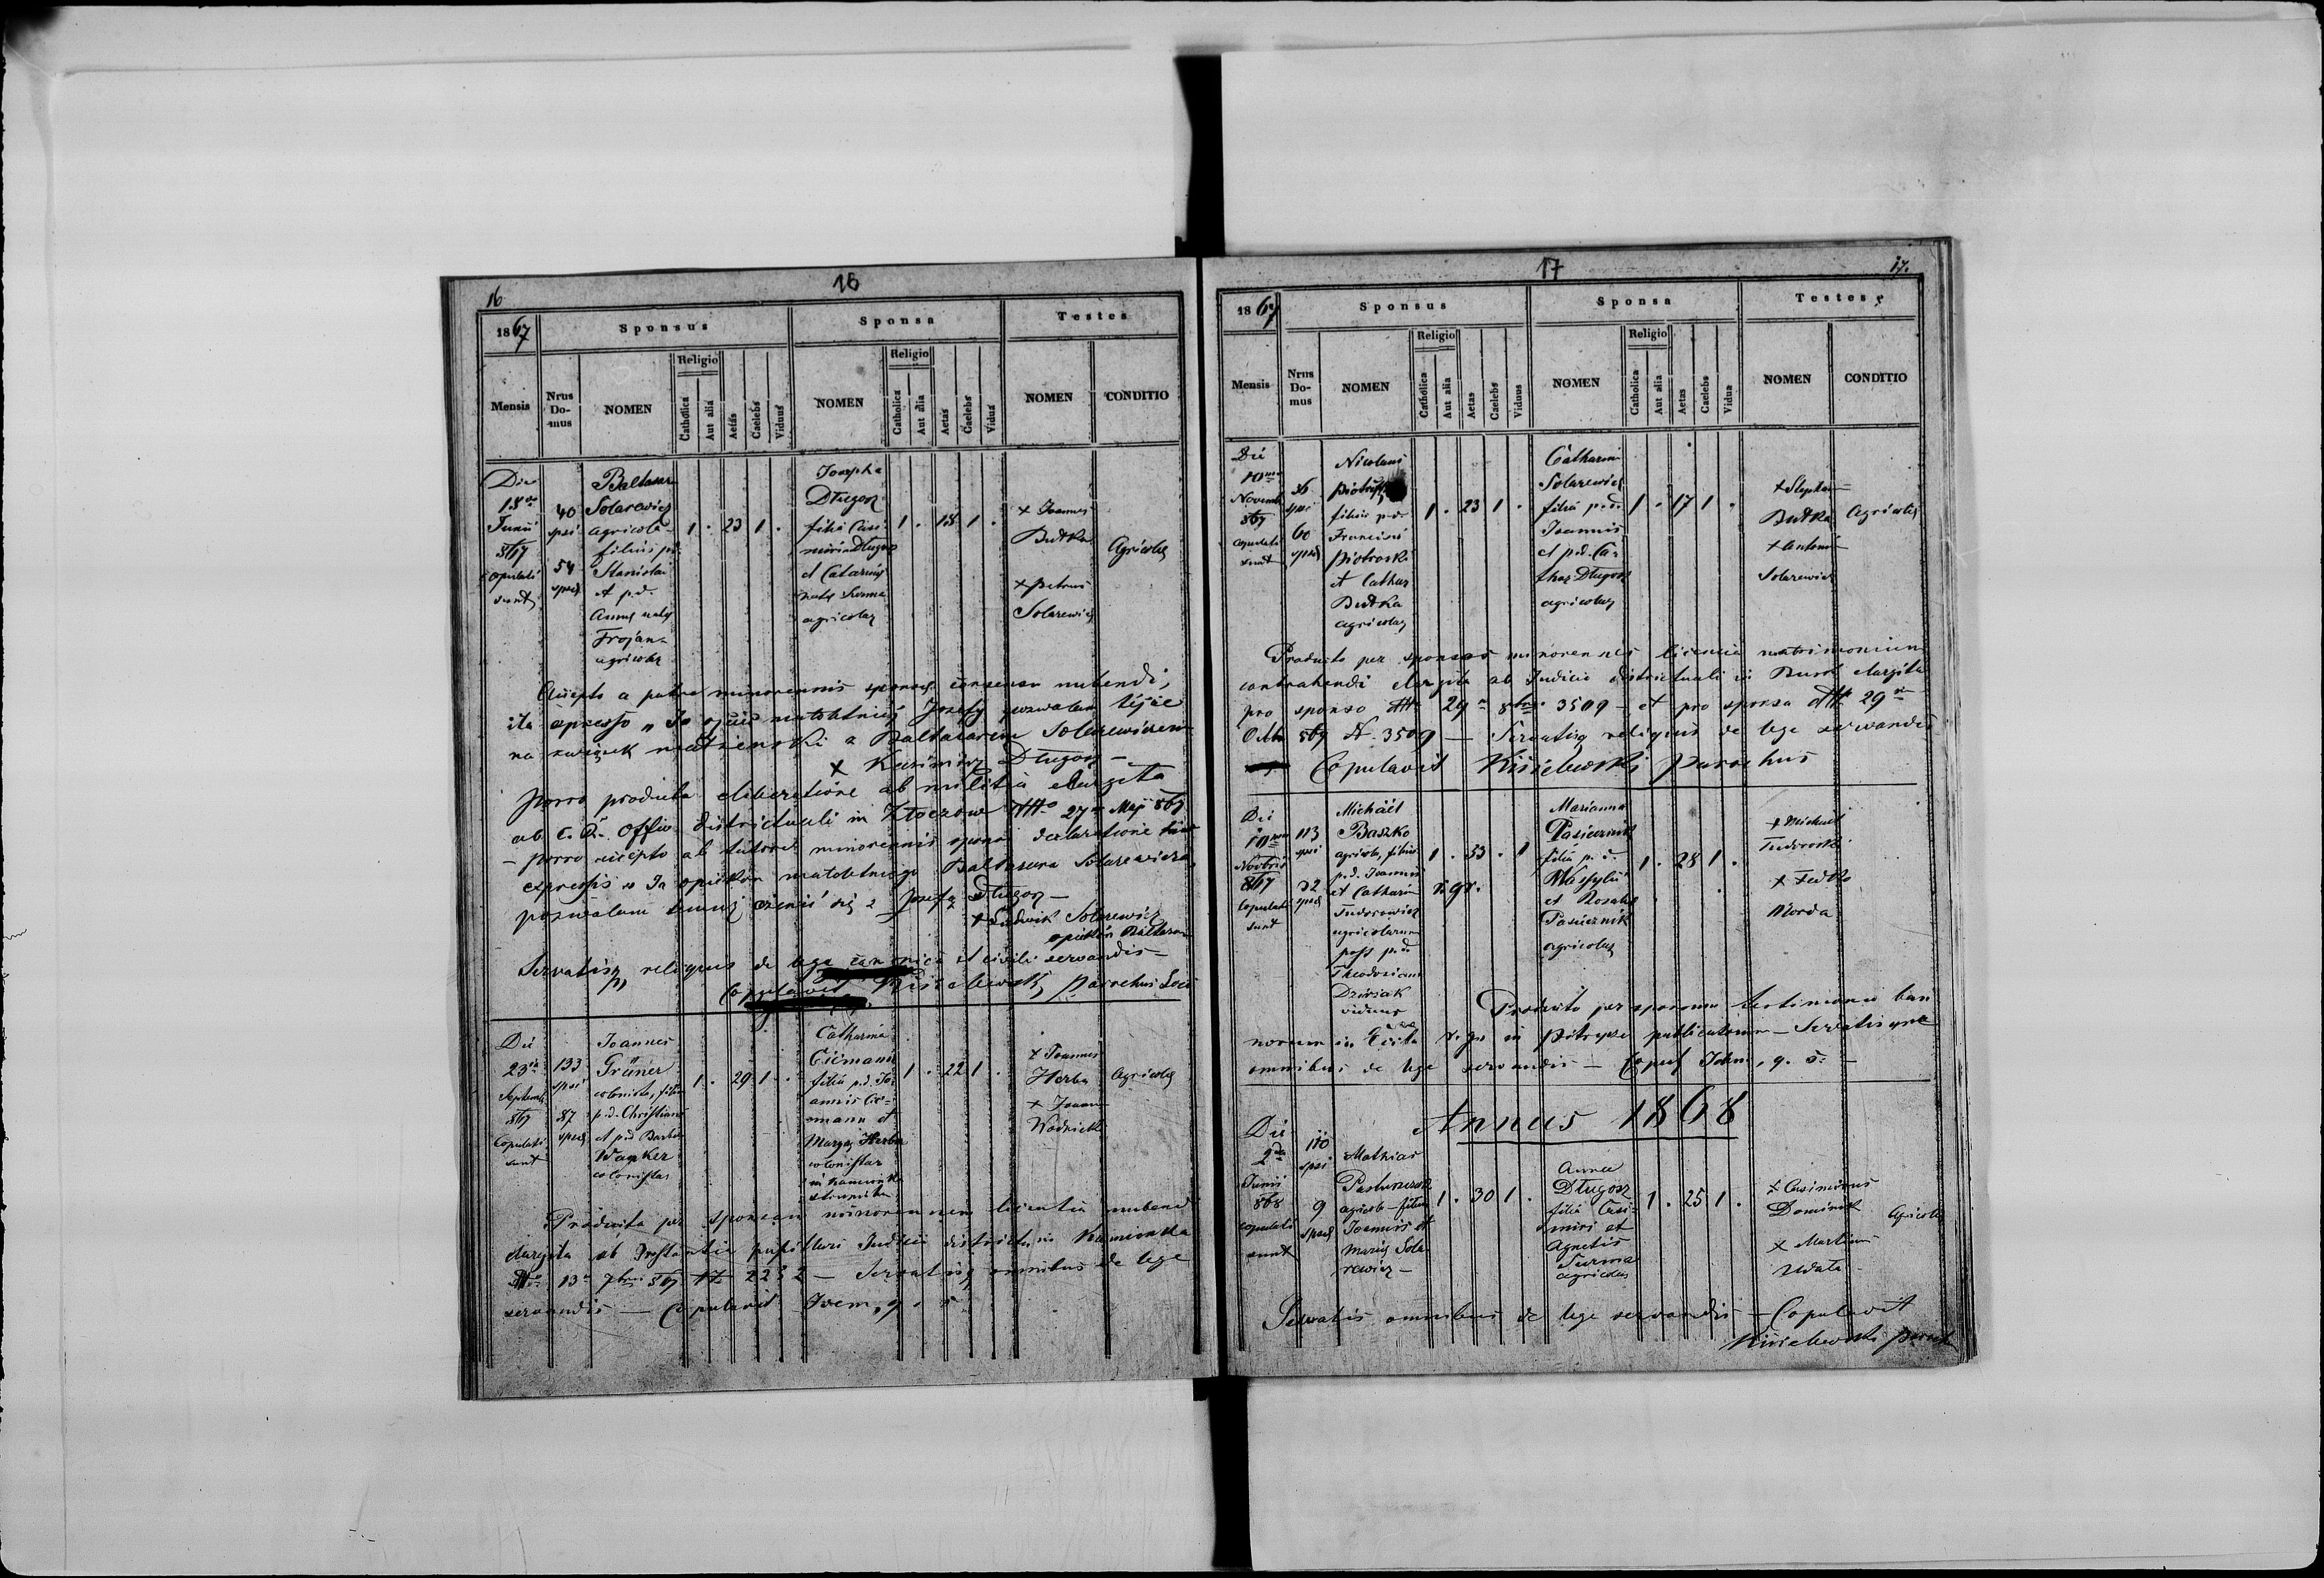 16
16
1867
Sponsus
Sponsa
Testes
Mensis
Nrus Do- mus
NOMEN
Religio
Catholica
Aut alia
Aetas
Caelebs
Viduus
NOMEN
Religio
Catholica
Aut alia
Aetas
Caelebs
Vidua
NOMEN
CONDITIO
Die
18va
Junii
867
copulati
sunt
40
spsi
54
spsae
Baltasar
Solarewicz
agricola
filius p.d.
Stanislai
et p.d.
Annae natae
Trojan
agricolae
1 . 23 1 .
Josepha
Długosz
filia Casi-
miri Długosz
et Catarinae
natae Surma
agricolar
1 . 18 1 .
+ Joannes
Dudka
+ Petrus
Solarewicz
Agricolae
Accepto a patre minorennis sponsae consensu nubendi,
ita expresso „Ja ojciec małoletniej Józefy pozwalam tejże
na związek małżenski z Baltazarem Solarewiczem
+ Kazimirz Długosz —
porro producta liberatione ab militia elargita
ab C. R. Officio districtuali in Złoczow ddto 27a Maji 867
— porro accepto ab tutore minorennis sponsi declaratione
expressis „Ja opiekun małoletniego Baltazara Solarewicza
pozwalam temuż ożenić się z Józefą Długosz —
+ Ludwik Solarewicz
opiekun Baltazara
Servatisq reliquis de lege canonica et civili servandis —
Copulavit Kisielewski parochus Loci
Die
23a
Septembris
867
Copulati
sunt
133
spsi
87
spsae
Joannes
Grüner
colonista, filius
p.d. Christiani
et p.d. Barbarae
Wanker
colonistar
1 . 29 1 .
Catharina
Ciemann
filia p.d. Jo-
annis Cie-
mann et
Margae Herba
colonistar
in Kamionka
1 . 22 1 .
+ Joannes
Herba
+ Joannes
Agricolae
Producta per sponsam minorennem licentia nubendi
elargita ab Instantia pupillari Judicii districtus in Kamionka
Ddto 13a 7bris 867 N 2232 — Servatisq omnibus de lege
servandis — Copulavit Idem, q. s.
17
17.
1867
Sponsus
Sponsa
Testes
Mensis
Nrus Do- mus
NOMEN
Religio
Catholica
Aut alia
Aetas
Caelebs
Viduus
NOMEN
Religio
Catholica
Aut alia
Aetas
Caelebs
Vidua
NOMEN
CONDITIO
Die
10ma
Novemb
867
copulati
sunt
36
spsi
60
spsae
Nicolaus
Piotrowski
filius p.d.
Francisci
Piotroski
et Cathar
Dudka
agricolar
1 . 23 1 .
Catharina
Solarewicz
filia p.d.
Joannis
et p.d. Ca-
thar Długosz
agricolar
1 . 17 1 .
+ Stephan
Dudka
+ Antoni
Solarewicz
Agricolae
Producta per sponsos minorennes licencia matrimonium
contrahendi elargita ab Judicio districtuali in Busk elargita
pro sponso ddto 29a 8bris 3509 — et pro sponsa ddto 29a
Octbr 867 N. 3509 — Servatisq reliquis de lege servandis
Copulavit Kisielewski parochus
Die
10ma
Novbris
867
Copulati
sunt
113
spsi
32
spsae
Michaël
Baszko
agricola, filius
p.d. Joannis
et Catharin
Tudorowicz
agricolarum
post p.d.
Theodosiam
viduus
1 . 53 . 1
r. gr.
Marianna
Pasiecznik
filia p.d.
Wasylii
et Rosaliae
Pasiecznik
agricolar
1 . 28 1 .
+ Michael
Tudoroski
+ Fedko
Morda
Producto per sponsum testimonio ban
norum in Eccla r. gr. in publicatorum — Servatisque
omnibus de lege servandis — Copul Idem, q. s. —
Annus 1868
Die
2da
Junii
868
copulati
sunt
110
spsi
9
spsae
Mathias
Pastuszczak
agricola – filius
Joannis et
Mariae Sola-
rewicz —
1 . 30 1 .
Anna
Długosz
filia Casi-
miri et
Agnetis
Surma
agricolar
1 . 25 1 .
+ Casimirus
Dominik
+ Martinus
Agricolae
Servatis omnibus de lege servandis — Copulavit
Kisielewski paroch